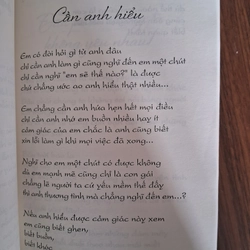 Cần anh hiểu
Em có đòi hỏi gì từ anh đâu
chỉ cần anh làm gì cũng nghĩ đến em một chút
chỉ cần nghĩ "em sẽ thế nào?" là được
chứ chẳng ước ao anh hiểu thật nhiều...
Em chẳng cần anh hứa hẹn hết mọi điều
chỉ cần anh nhớ em buồn nhiều hay ít
cảm giác của em chắc là anh cũng biết
xin lỗi làm gì khi mọi việc đã xong...
Nghĩ cho em một chút có được không
dù em mạnh mẽ cũng chỉ là con gái
chẳng lẽ người ta cứ yêu mềm thế đấy
thì anh thương tình mà chẳng nghĩ đến em...?
Nếu anh hiểu được cảm giác này xem
em cũng biết ghen,
biết buồn,
biết khóc